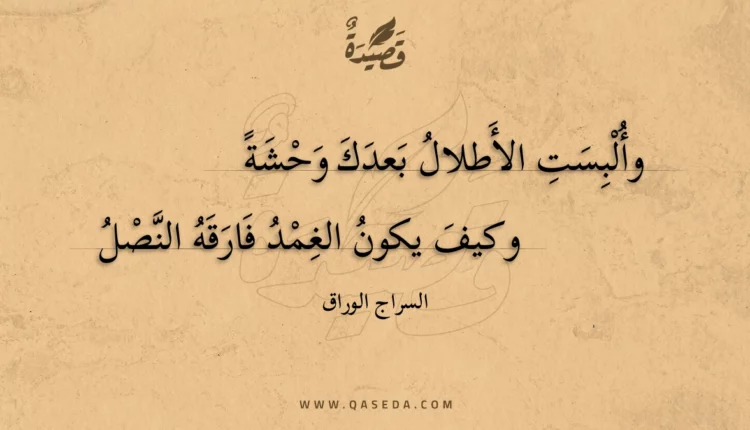 قَصِيْدَةٌ
وأُلْبِسَتِ الأَطلالُ بَعدَكَ وَحْشَةً
وكيفَ يكونُ الغِمْدُ فَارَقَهُ النَّصْلُ
السراج الوراق
WWW.QASEDA.COM